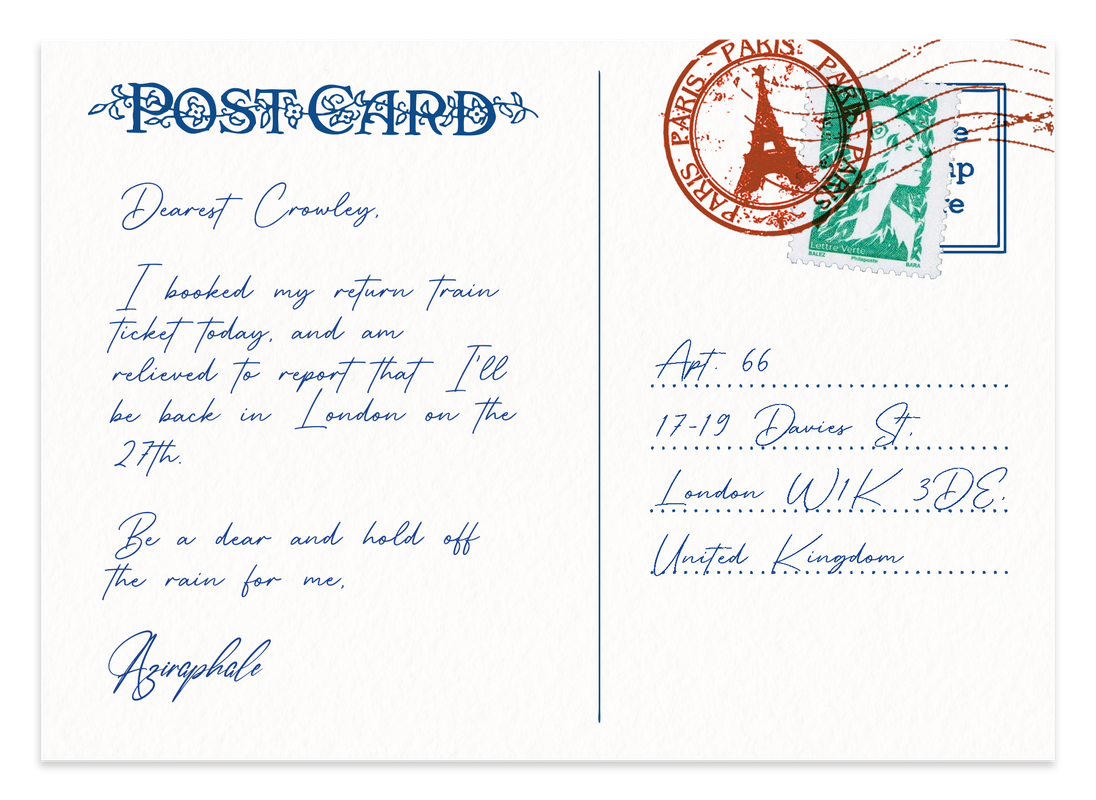 POSTCARD
Dearest Crowley,
I booked my return train
ticket today, and am
relieved to report that I'll
be back in London on the
27th.
Be a dear and hold off
the rain for me,
Aziraphale
PARIS - PARIS - PARIS - PARIS - PARIS - PARIS
Lettre Verte
BALEZ Philaposte BARA
Apt. 66
17-19 Davies St.
London W1K 3DE.
United Kingdom